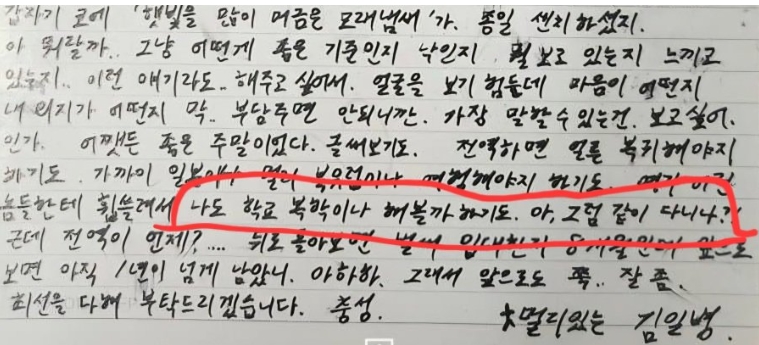 갑자기 코에 '햇빛을 많이 머금은 모래냄새'가. 종일 센치하셨지.
아 뭐랄까.. 그냥 어떤게 좋은 기준인지 낙인지 뭘 보고 있는지 느끼고
있는지.. 이런 얘기라도.. 해주고 싶어서. 얼굴을 보기 힘든데 마음이 어떤지
내 의지가 어떤지 막.. 부담주면 안되니깐. 가장 말할 수 있는건. 보고싶어.
인가. 어쨋든 좋은 주말이었다. 글써보기도. 전역하면 얼른 복귀해야지
하기도. 가까이 일본이나 멀리 북유럽이나 여행해야지 하기도.
놈들한테 휩쓸려서 나도 학교 복학이나 해볼까 하기도. 아, 그럼 같이 다니나?
근데 전역이 언제?.... 뒤로 돌아보면 벌써 입대한지 8개월인데 앞으로
보면 아직 1년이 넘게 남았니. 아하하. 그래서 앞으로도 쭉.. 잘 좀.
최선을 다해 부탁드리겠습니다. 충성.
멀리있는 김일병.